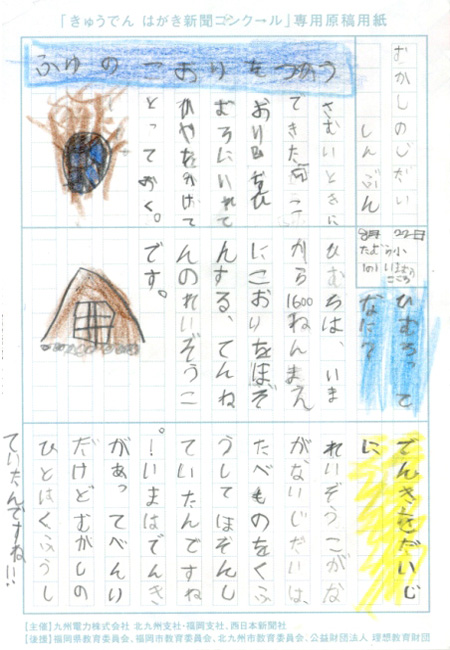 「きゅうでん はがき新聞コンクール」専用原稿用紙
むかしのじだい
しんぶん
8月22日
ふゆのこおりをつかう
さむいときに
できた
おり
むろにいれて
とっておく。
ひむろって
なに？
ひむろは、いま
から1600ねんまえ
にこおりをほぞ
んする、てんね
んのれいぞうこ
です。
でんきをだいじ
に
れいぞうこがな
がないじだいは、
たべものをくふ
うしてほぞんし
ていたんですね
！いまはでんき
があってべんり
だけどむかしの
ひとはくふうし
ていたんですね!!
【主催】九州電力株式会社 北九州支社・福岡支社、西日本新聞社
【後援】福岡県教育委員会、福岡市教育委員会、北九州市教育委員会、公益財団法人 理想教育財団